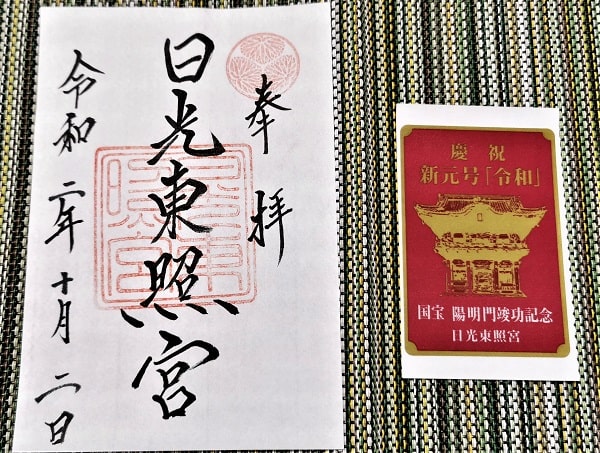 奉拝
日光東照宮
令和二年十月二日
慶祝
新元号「令和」
国宝 陽明門竣功記念
日光東照宮